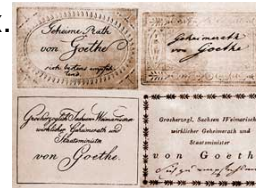 x.
Geheime Rath
von Goethe
Geheimerath
von Goethe
Großherzoglich Sachsen Weimarischer
wirklicher Geheimerath und
Staatsminister
von Goethe.
Grosherzogl. Sachsen Weimarisch
wirklicher Geheimerath und
Staatsminister
von Goeth